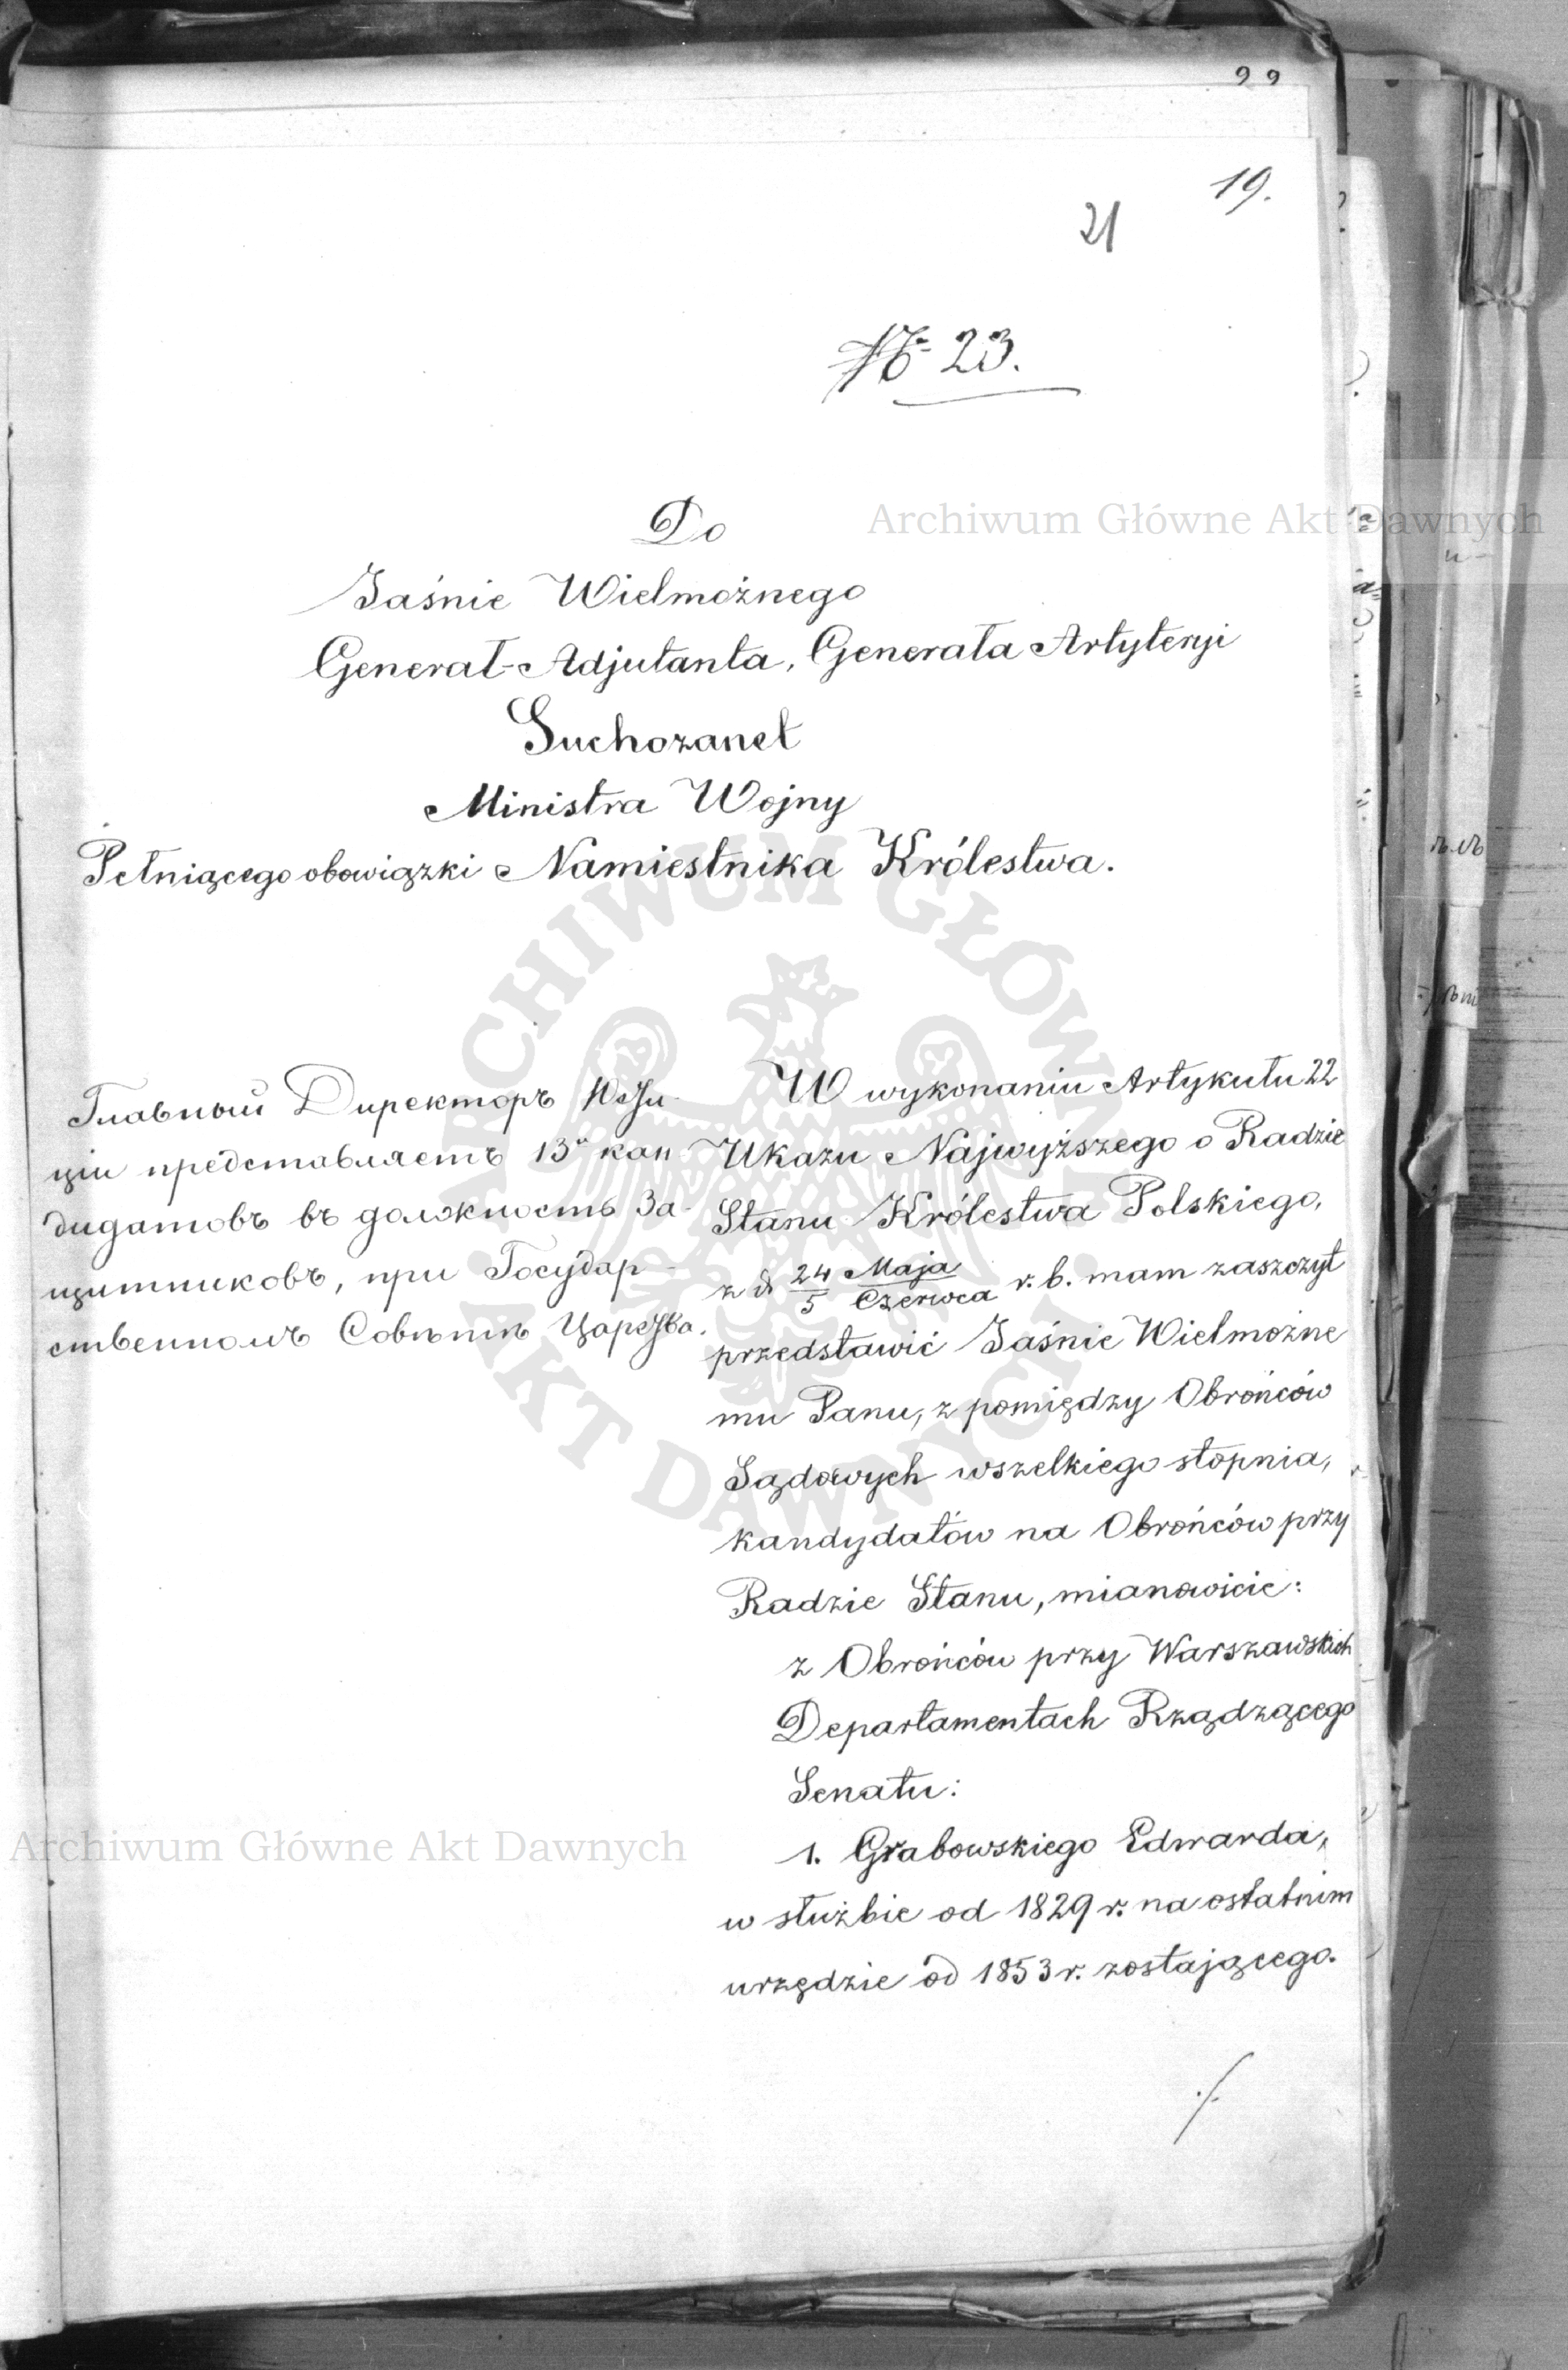 22
19.
21
№ 23.
Do
Jaśnie Wielmożnego
Generał-Adjutanta, Generała Artyleryi
Suchozanet
Ministra Wojny
Pełniącego obowiązki Namiestnika Królestwa.
Главный Директоръ Юсти-
ціи представляетъ 13ъ кан
дидатовъ въ должность За-
щитниковъ, при Государ-
ственномъ Совѣтѣ Царства.
W wykonaniu Artykułu 22
Ukazu Najwyższego o Radzie
Stanu Królestwa Polskiego,
z d 24/5 Maja/Czerwca r. b. mam zaszczyt
przedstawić Jaśnie Wielmożne
mu Panu, z pomiędzy Obrońców
Sądowych wszelkiego stopnia,
kandydatów na Obrońców przy
Radzie Stanu, mianowicie:
z Obrońców przy Warszawskich
Departamentach Rządzącego
Senatu:
1. Grabowskiego Edwarda,
w służbie od 1829 r. na ostatnim
urzędzie od 1853 r. zostającego.
./.
Archiwum Główne Akt Dawnych
Archiwum Główne Akt Dawnych
ARCHIWUM GŁÓWNE AKT DAWNYCH